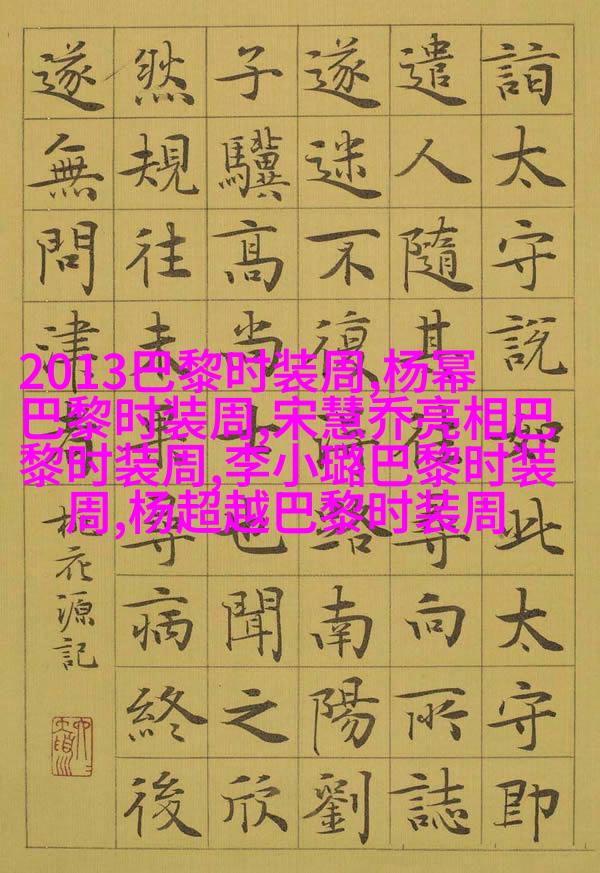 詣太守說如此太守即
遣人隨其往尋向所誌
遂迷不復得路南陽劉
子驥高尚士也聞之欣
然規往未果尋病終後
遂無問津者
桃花源記
2013巴黎时装周,杨幂
巴黎时装周,宋慧乔亮相巴
黎时装周,李小璐巴黎时装
周,杨超越巴黎时装周